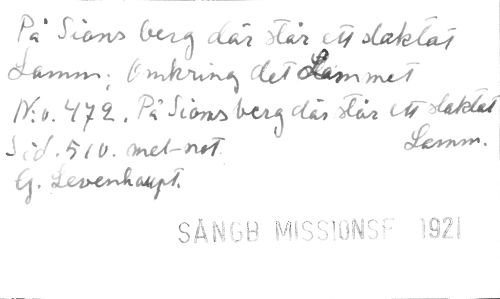 På Sions berg där står ett slaktat
Lamm; Omkring det Lammet
N:o. 472. På Sions berg där står ett slaktat
Lamm.
Sid. 510. mel-not.
G. Levenhaupt.
SÅNGB MISSIONSF 1921